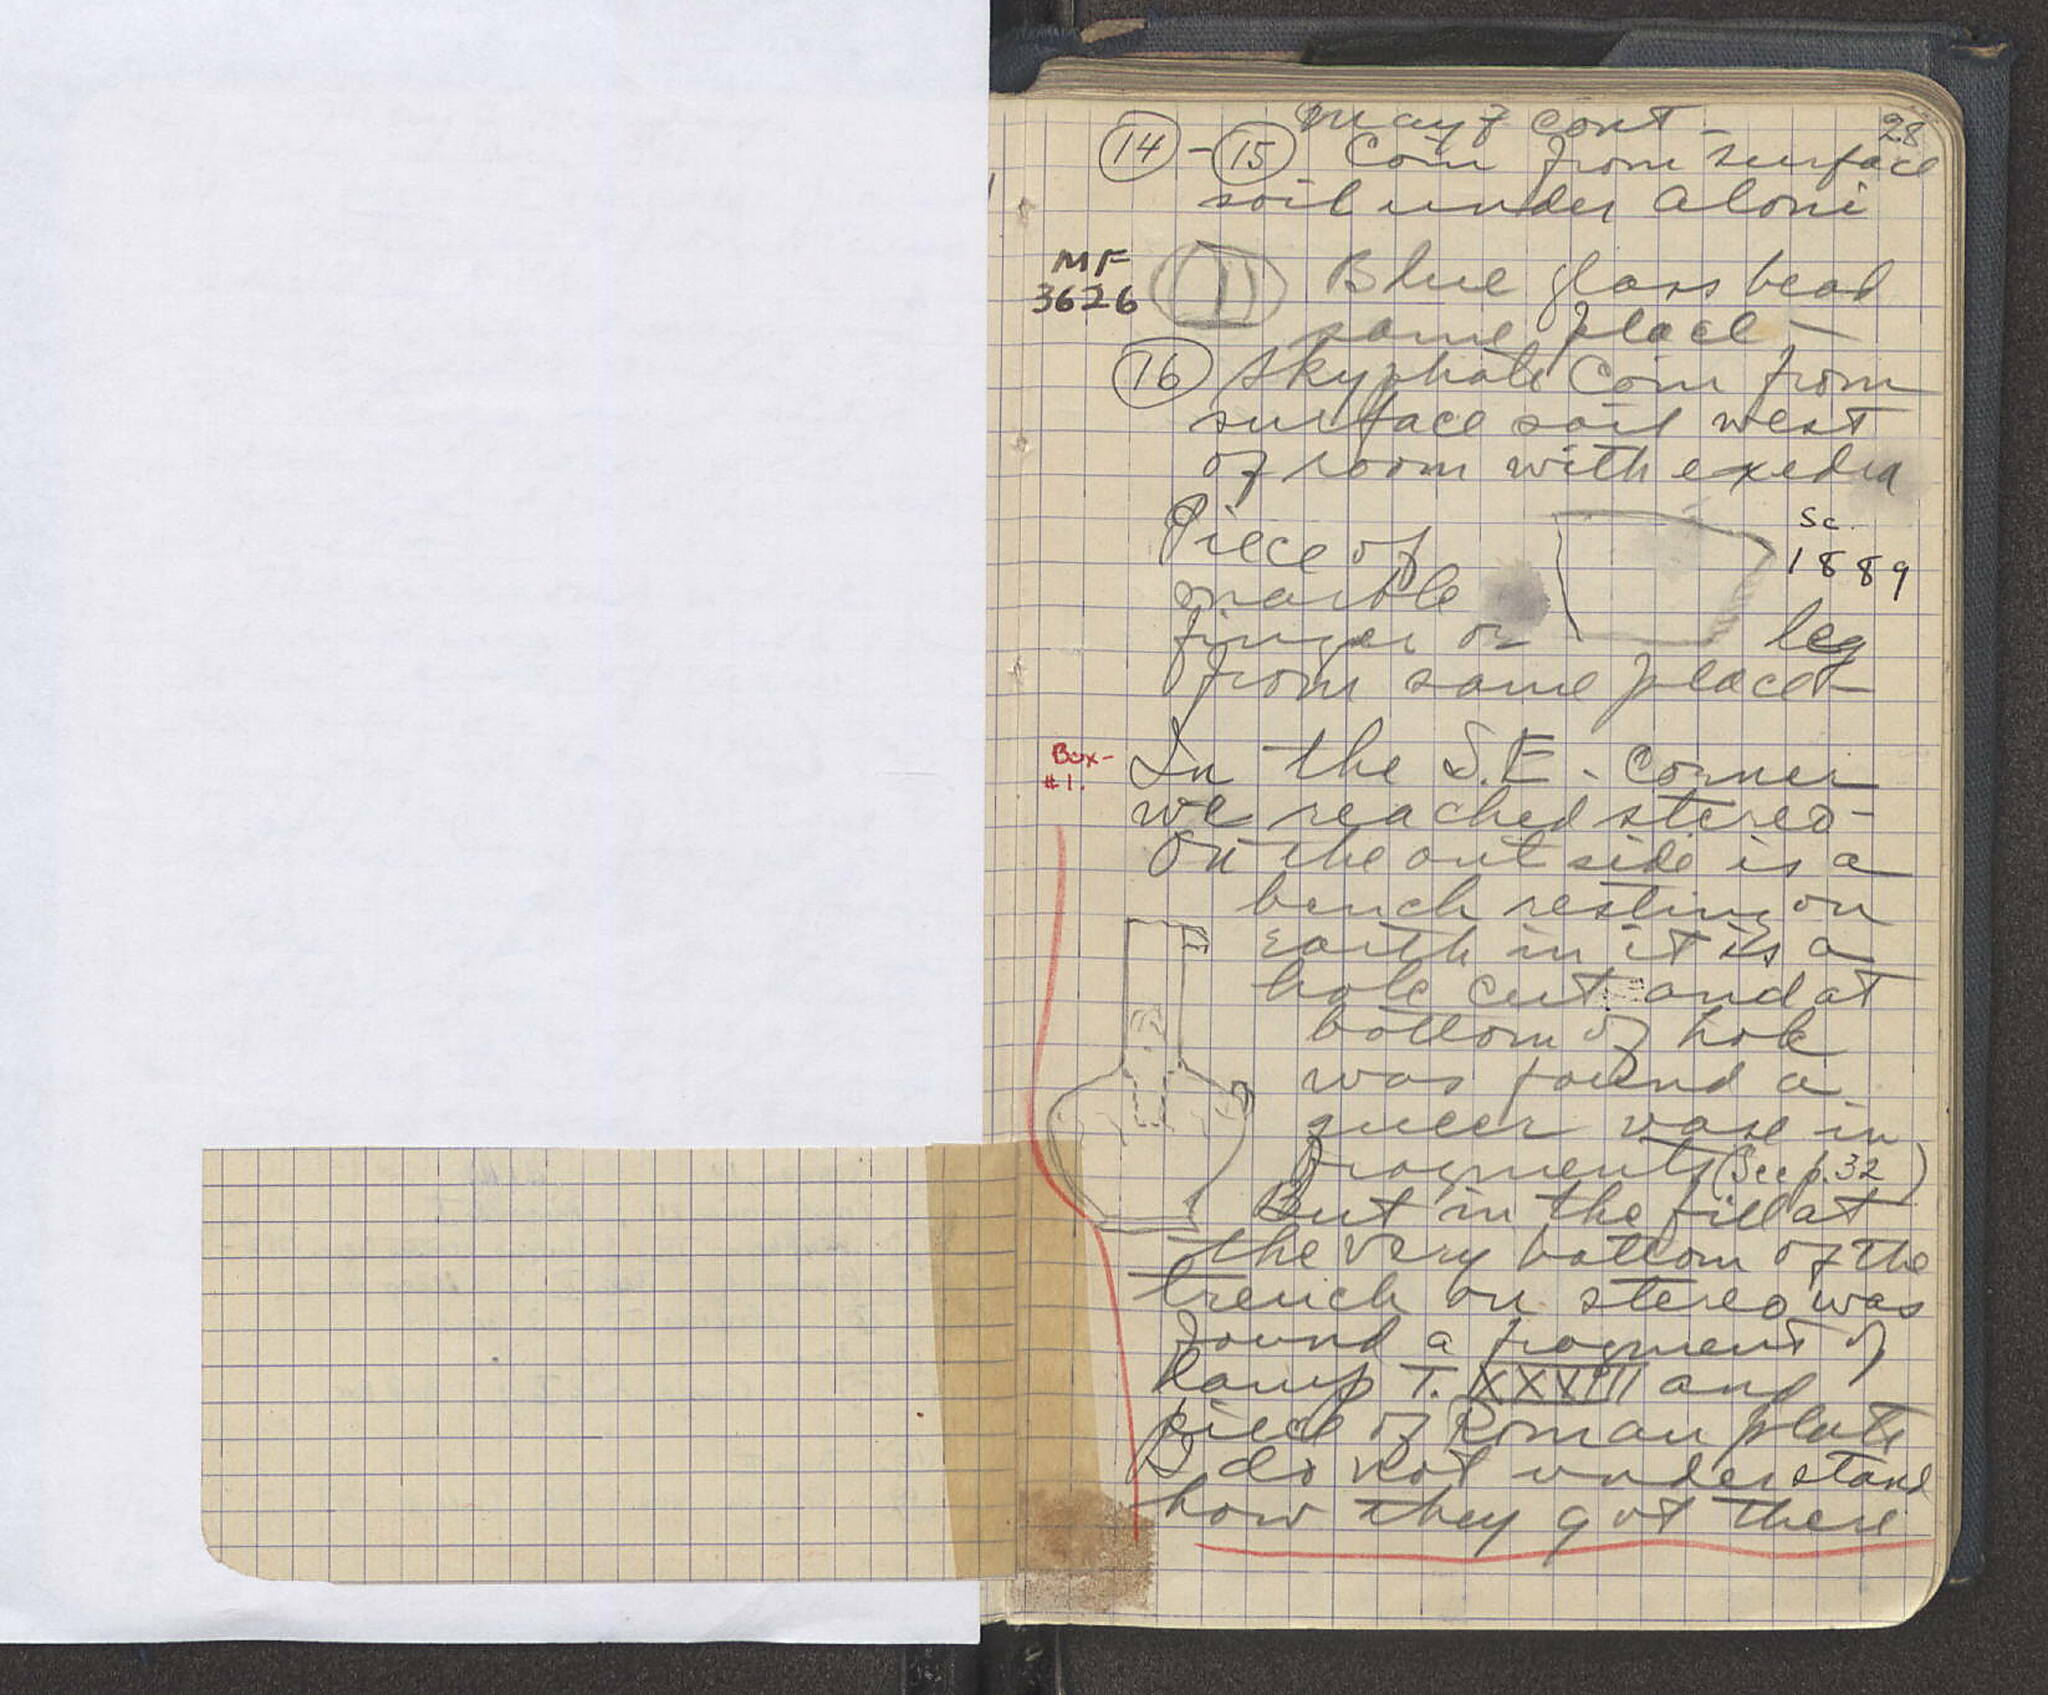 May 7 cont -
28
(14) - (15) Coin from surface
soil under aloni
MF
3626
(1) Blue glass bead
same place -
(16) Skyphate Coin from
surface soil west
of room with exedra
Piece of
marble
Sc.
1889
finger or leg
from same place -
Box -
#1.
In the S.E - Corner
we reached stereo -
On the out side is a
bench resting on
earth in it is a
hole cut and at
bottom of hole
was found a
queer vase in
fragments (See p. 32)
But in the fill at
the very bottom of the
trench on stereo was
found a fragment of
lamp T. XXVIII and
piece of Roman plate
I do not understand
how they got there